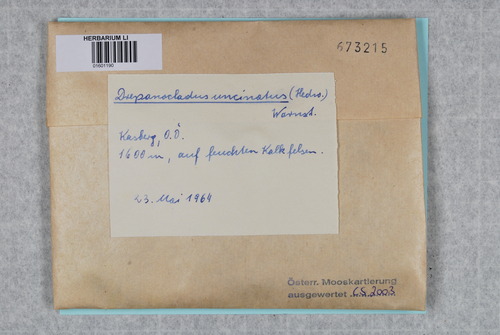 HERBARIUM LI
01601190
673215
Drepanocladus uncinatus (Hedw.)
Warnst.
Kasberg, O.Ö.
1600 m, auf feuchten Kalkfelsen.
23. Mai 1964
Österr. Mooskartierung
ausgewertet CS 2003